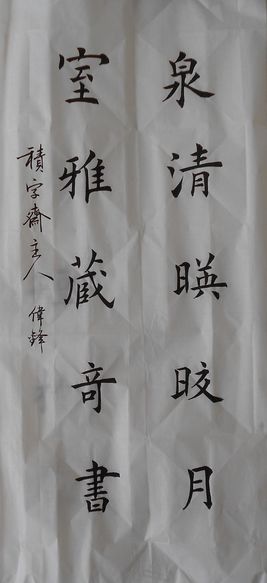 泉清暎晈月
室雅蔵奇書
積字齋主人 偉鋒